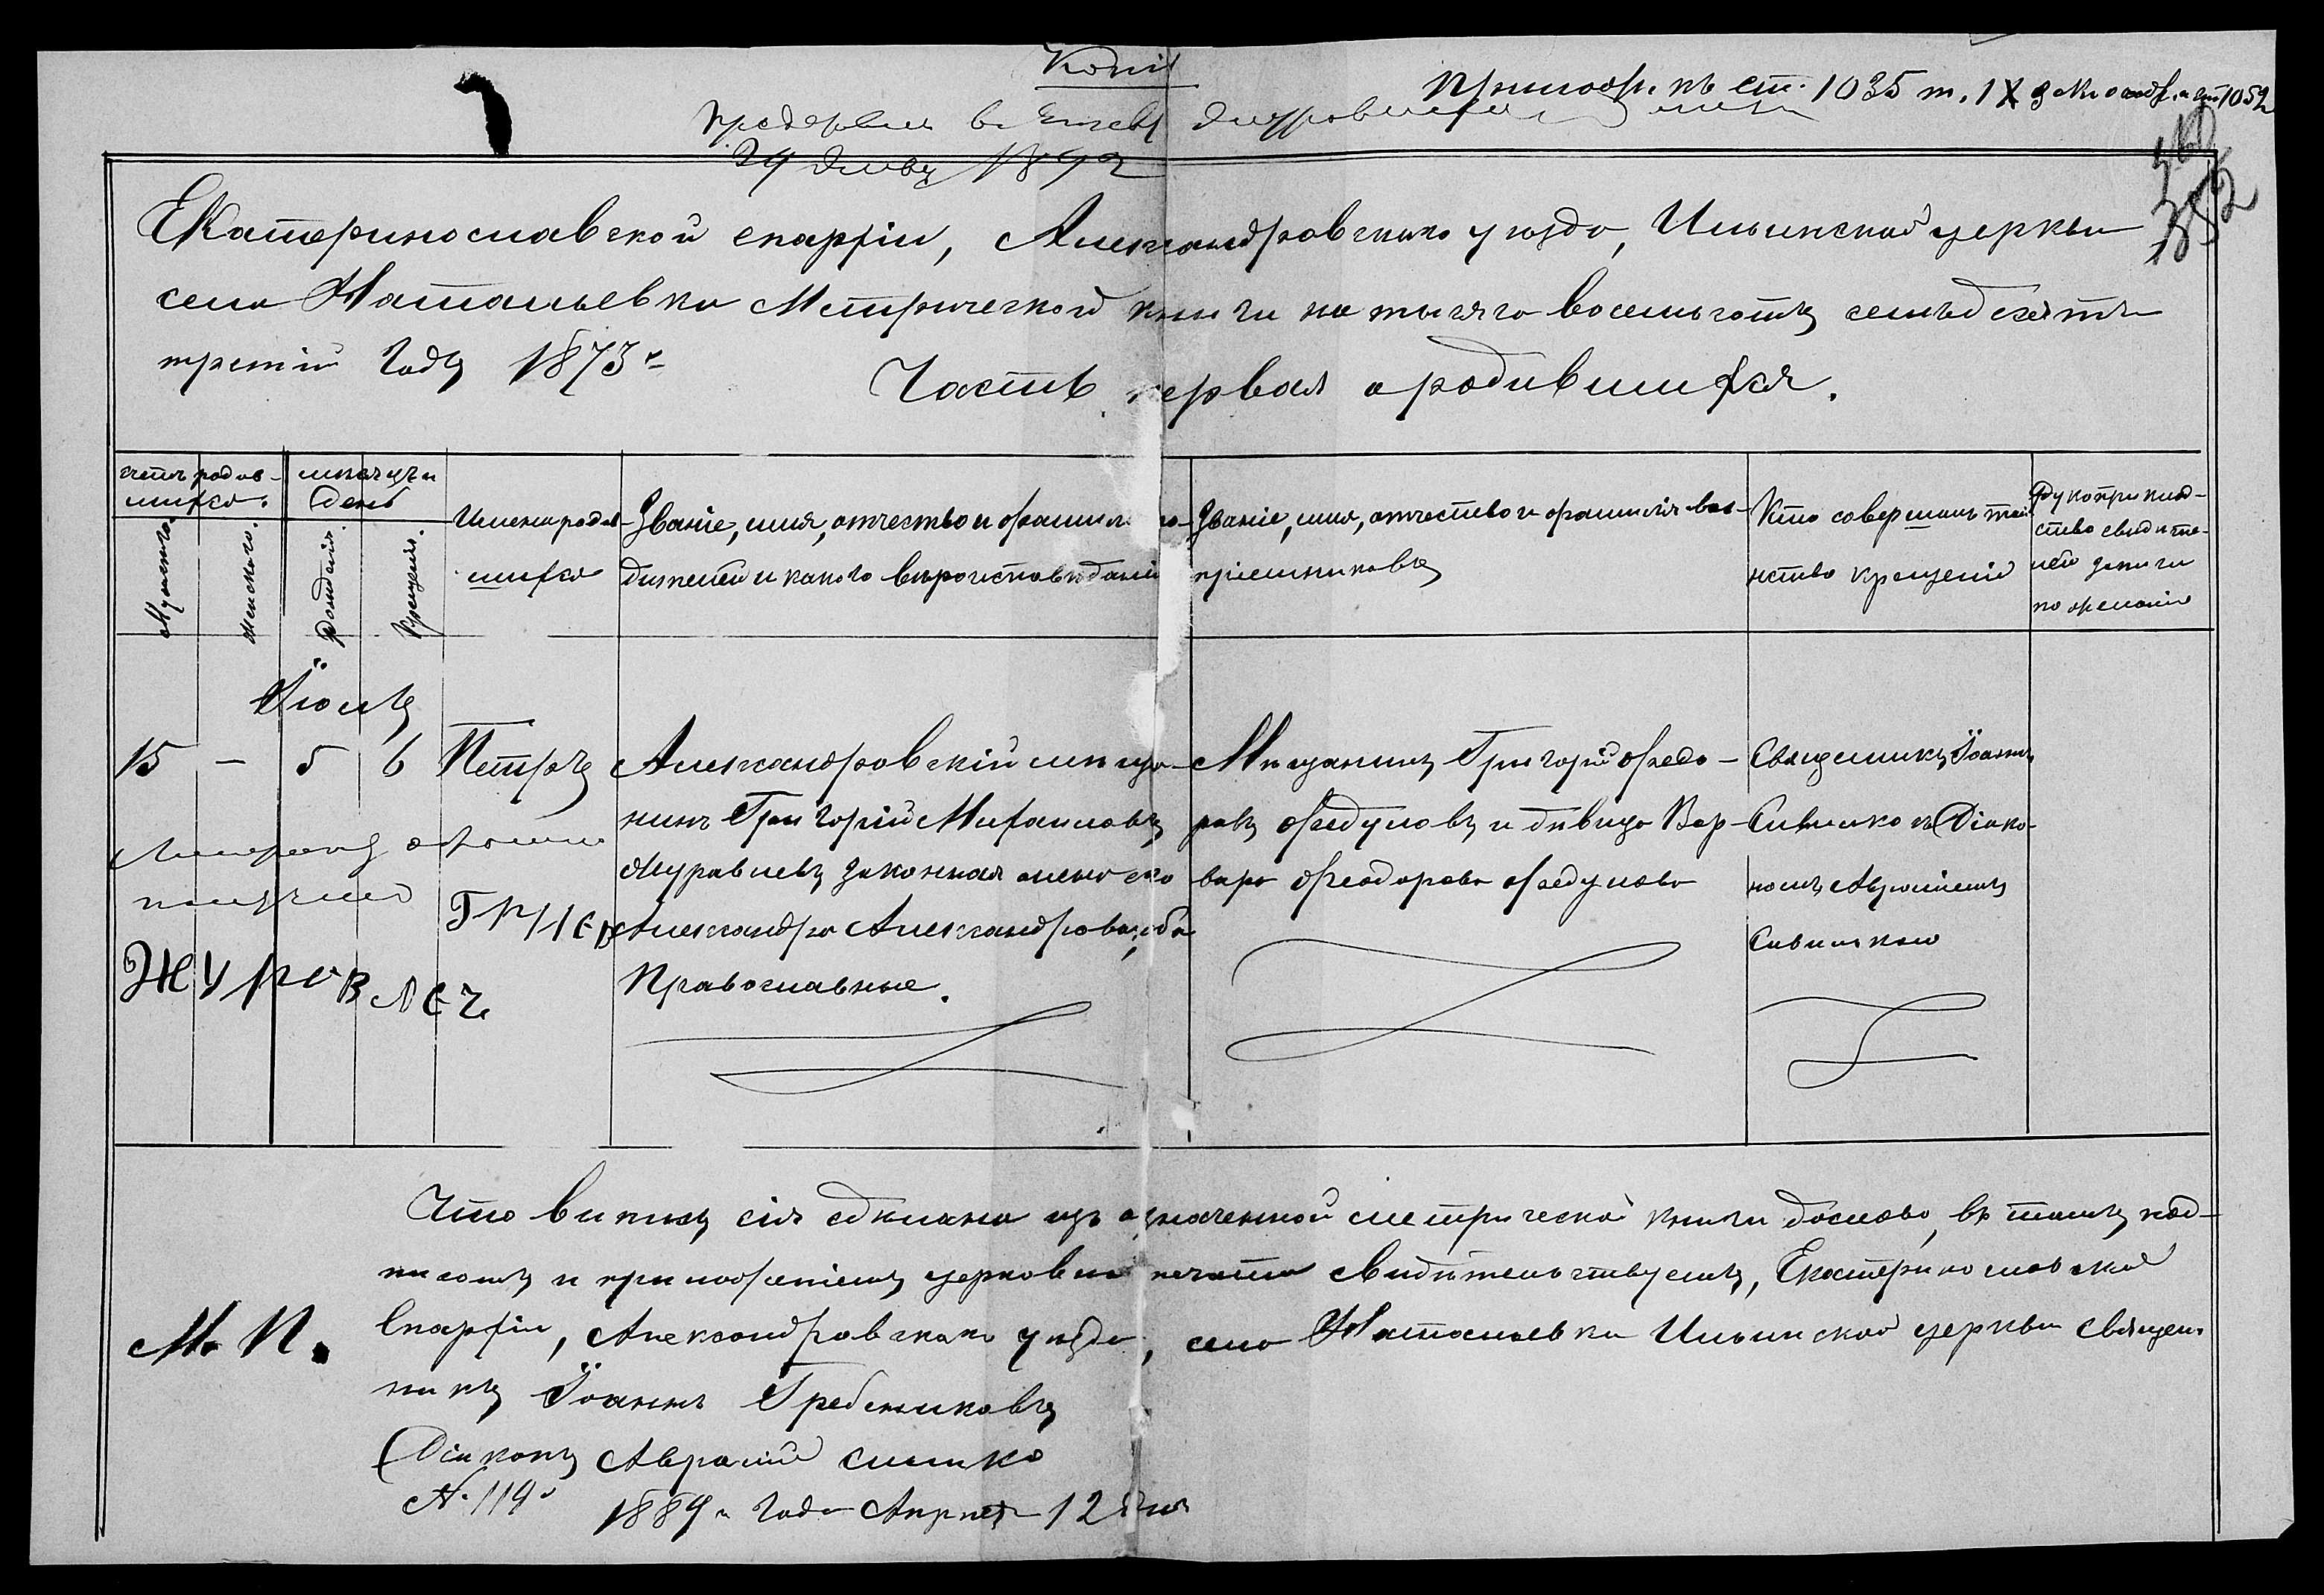 Копія
Приложе. къ ст. 1035 т. IX зак. о сост. и ст. 1052
24 1892
382
Екатеринославской епархіи, Александровскаго уѣзда, Ильинской церкви
села Натальевки Метрической книги на тысяча восемьсотъ семьдесятъ
третій годъ 1873 г.
Часть первая о родившихся.
счетъ родив-
шихся.
мѣсяцъ и
день
Мужскаго.
Женскаго.
Рожденія.
Крещенія.
Имена родив-
шихся
Званіе, имя, отчество и фамилія ро-
дителей и какого вѣроисповѣданія
Званіе, имя, отчество и фамилія вос-
пріемниковъ
Кто совершалъ таи-
нство крещенія
Рукоприклад-
ство свидѣте-
лей записи
по желанію
Іюль
15 — 5 6 Петръ
Александровскій мѣща-
нинъ Григорій Михаиловъ
Журавлевъ законная жена его
Александра Александрова, оба
Православные.
Мѣщанинъ Григорій Федо-
ровъ Федуловъ и дѣвица Вар-
вара Феодорова Федулова
Священникъ Іоаннъ
Діако-
номъ Авраміемъ
получилъ
Григ
Журавлев
Что выпись сія сдѣлана изъ означенной метрической книги дословно, въ томъ под-
писомъ и приложеніемъ церковной печати свидѣтельствуемъ, Екатеринославской
Епархіи, Александровскаго уѣзда, села Натальевки Ильинской церкви Священ
М. П.
никъ Іоаннъ Гребениковъ
Діаконъ Аврамій
№ 114
1889 года Апрѣля 12 дня